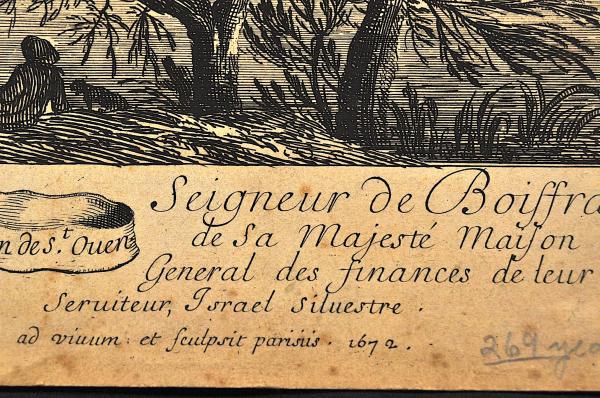 Seigneur de Boiſſra
n de S.t Ouen
de Sa Majesté Maiſon
General des finances de leur
Seruiteur, Israel Siluestre .
ad viuum : et ſculpsit parisiis . 1672 .
269 yea